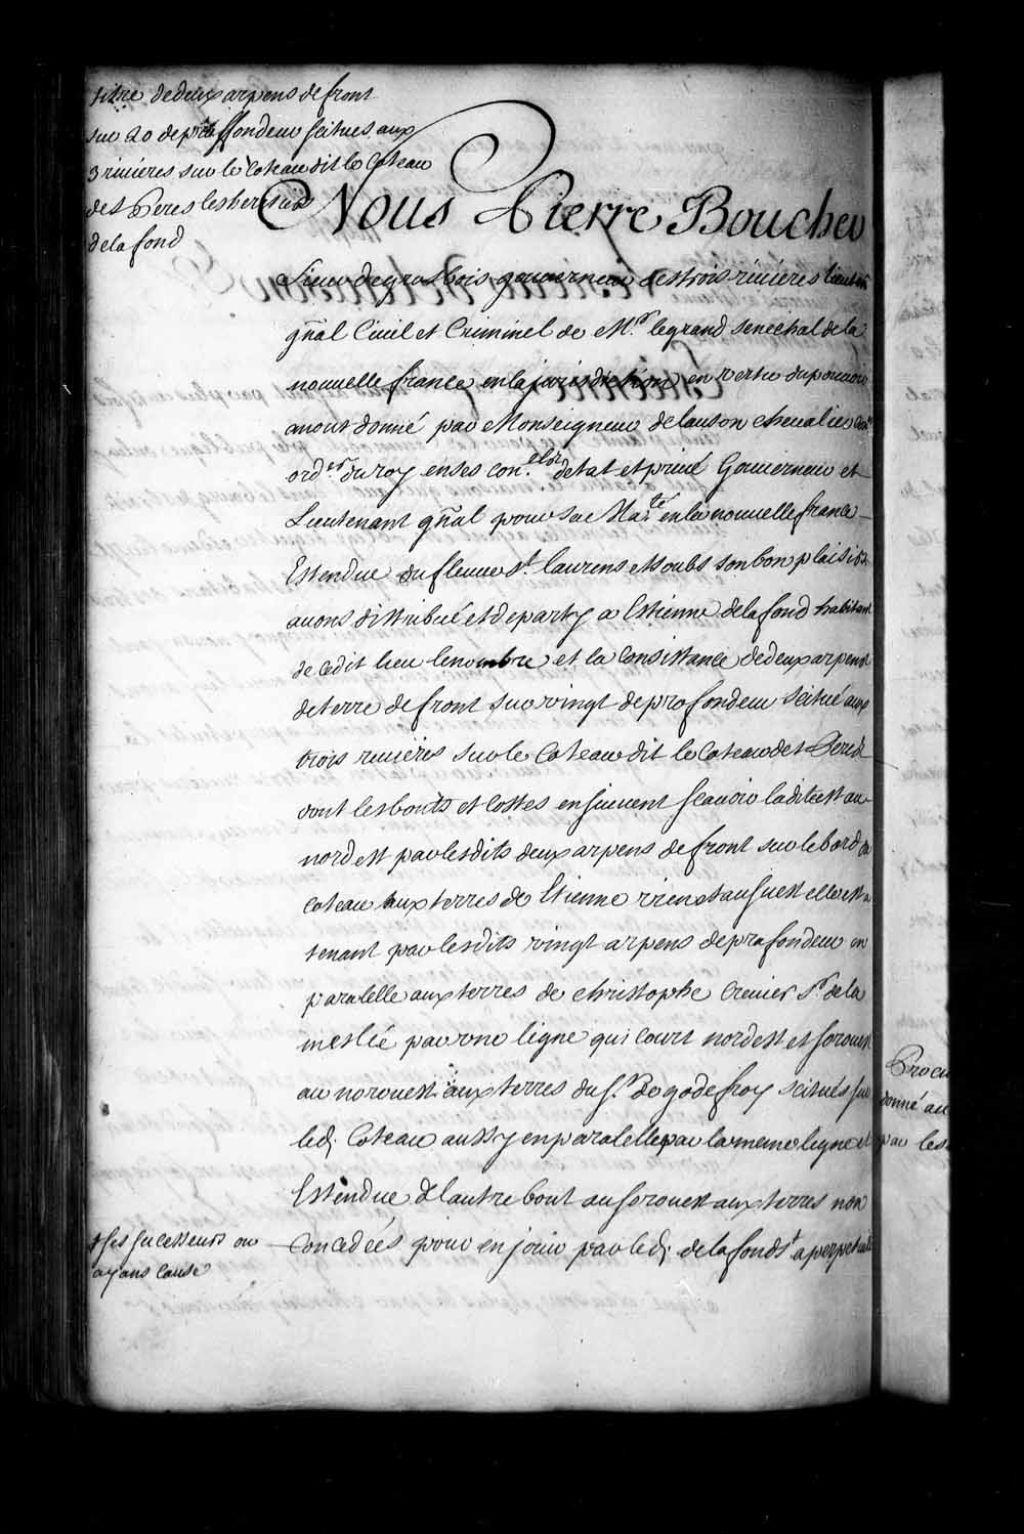 titre de deux arpens de front
sur 20 de profondeur scitues aux
3 rivieres sur le coteau dit le coteau
des Peres les heritiers
de la fond
Nous Pierre Boucher
Sieur de grosbois gouverneur des trois rivieres lieutent
gñal Civil et Criminel de Mr. le grand senechal de la
nouvelle france en la jurisdiction en vertu du pouvoir
a nous donné par Monseigneur de lauson chevalier Conr
ordre. du roy en ses conelz. detat et privé Gouverneur et
Lieutenant gñal pour sa Mate. en la nouvelle france
Estendue du fleuve st. laurens et soubs son bon plaisir
avons distribué et departy a Estienne de la fond habitant
de cedit lieu le nombre et la Consistance de deux arpens
de terre de front sur vingt de profondeur scitué aux
trois rivieres sur le coteau dit le coteau des Peres
dont les bouts et costes ensuivent scavoir ladite est au
nord est par lesdits deux arpens de front sur le bord du
coteau aux terres de Etienne vien et au suest elle est
tenant par lesdits vingt arpens de profondeur en
paralelle aux terres de christophe Crevier sr. de la
meslée par une ligne qui court nord est et sorouest
au norouest aux terres du sr. De godefroy scitués sur
led. Coteau aussy en paralelle par la meme ligne et
Estendue & lautre bout au sorouest aux terres non
Concedées pour en jouir par led. de la fond a perpetuité
ses sucesseurs ou
ayans cause
Procu
donné au
par les